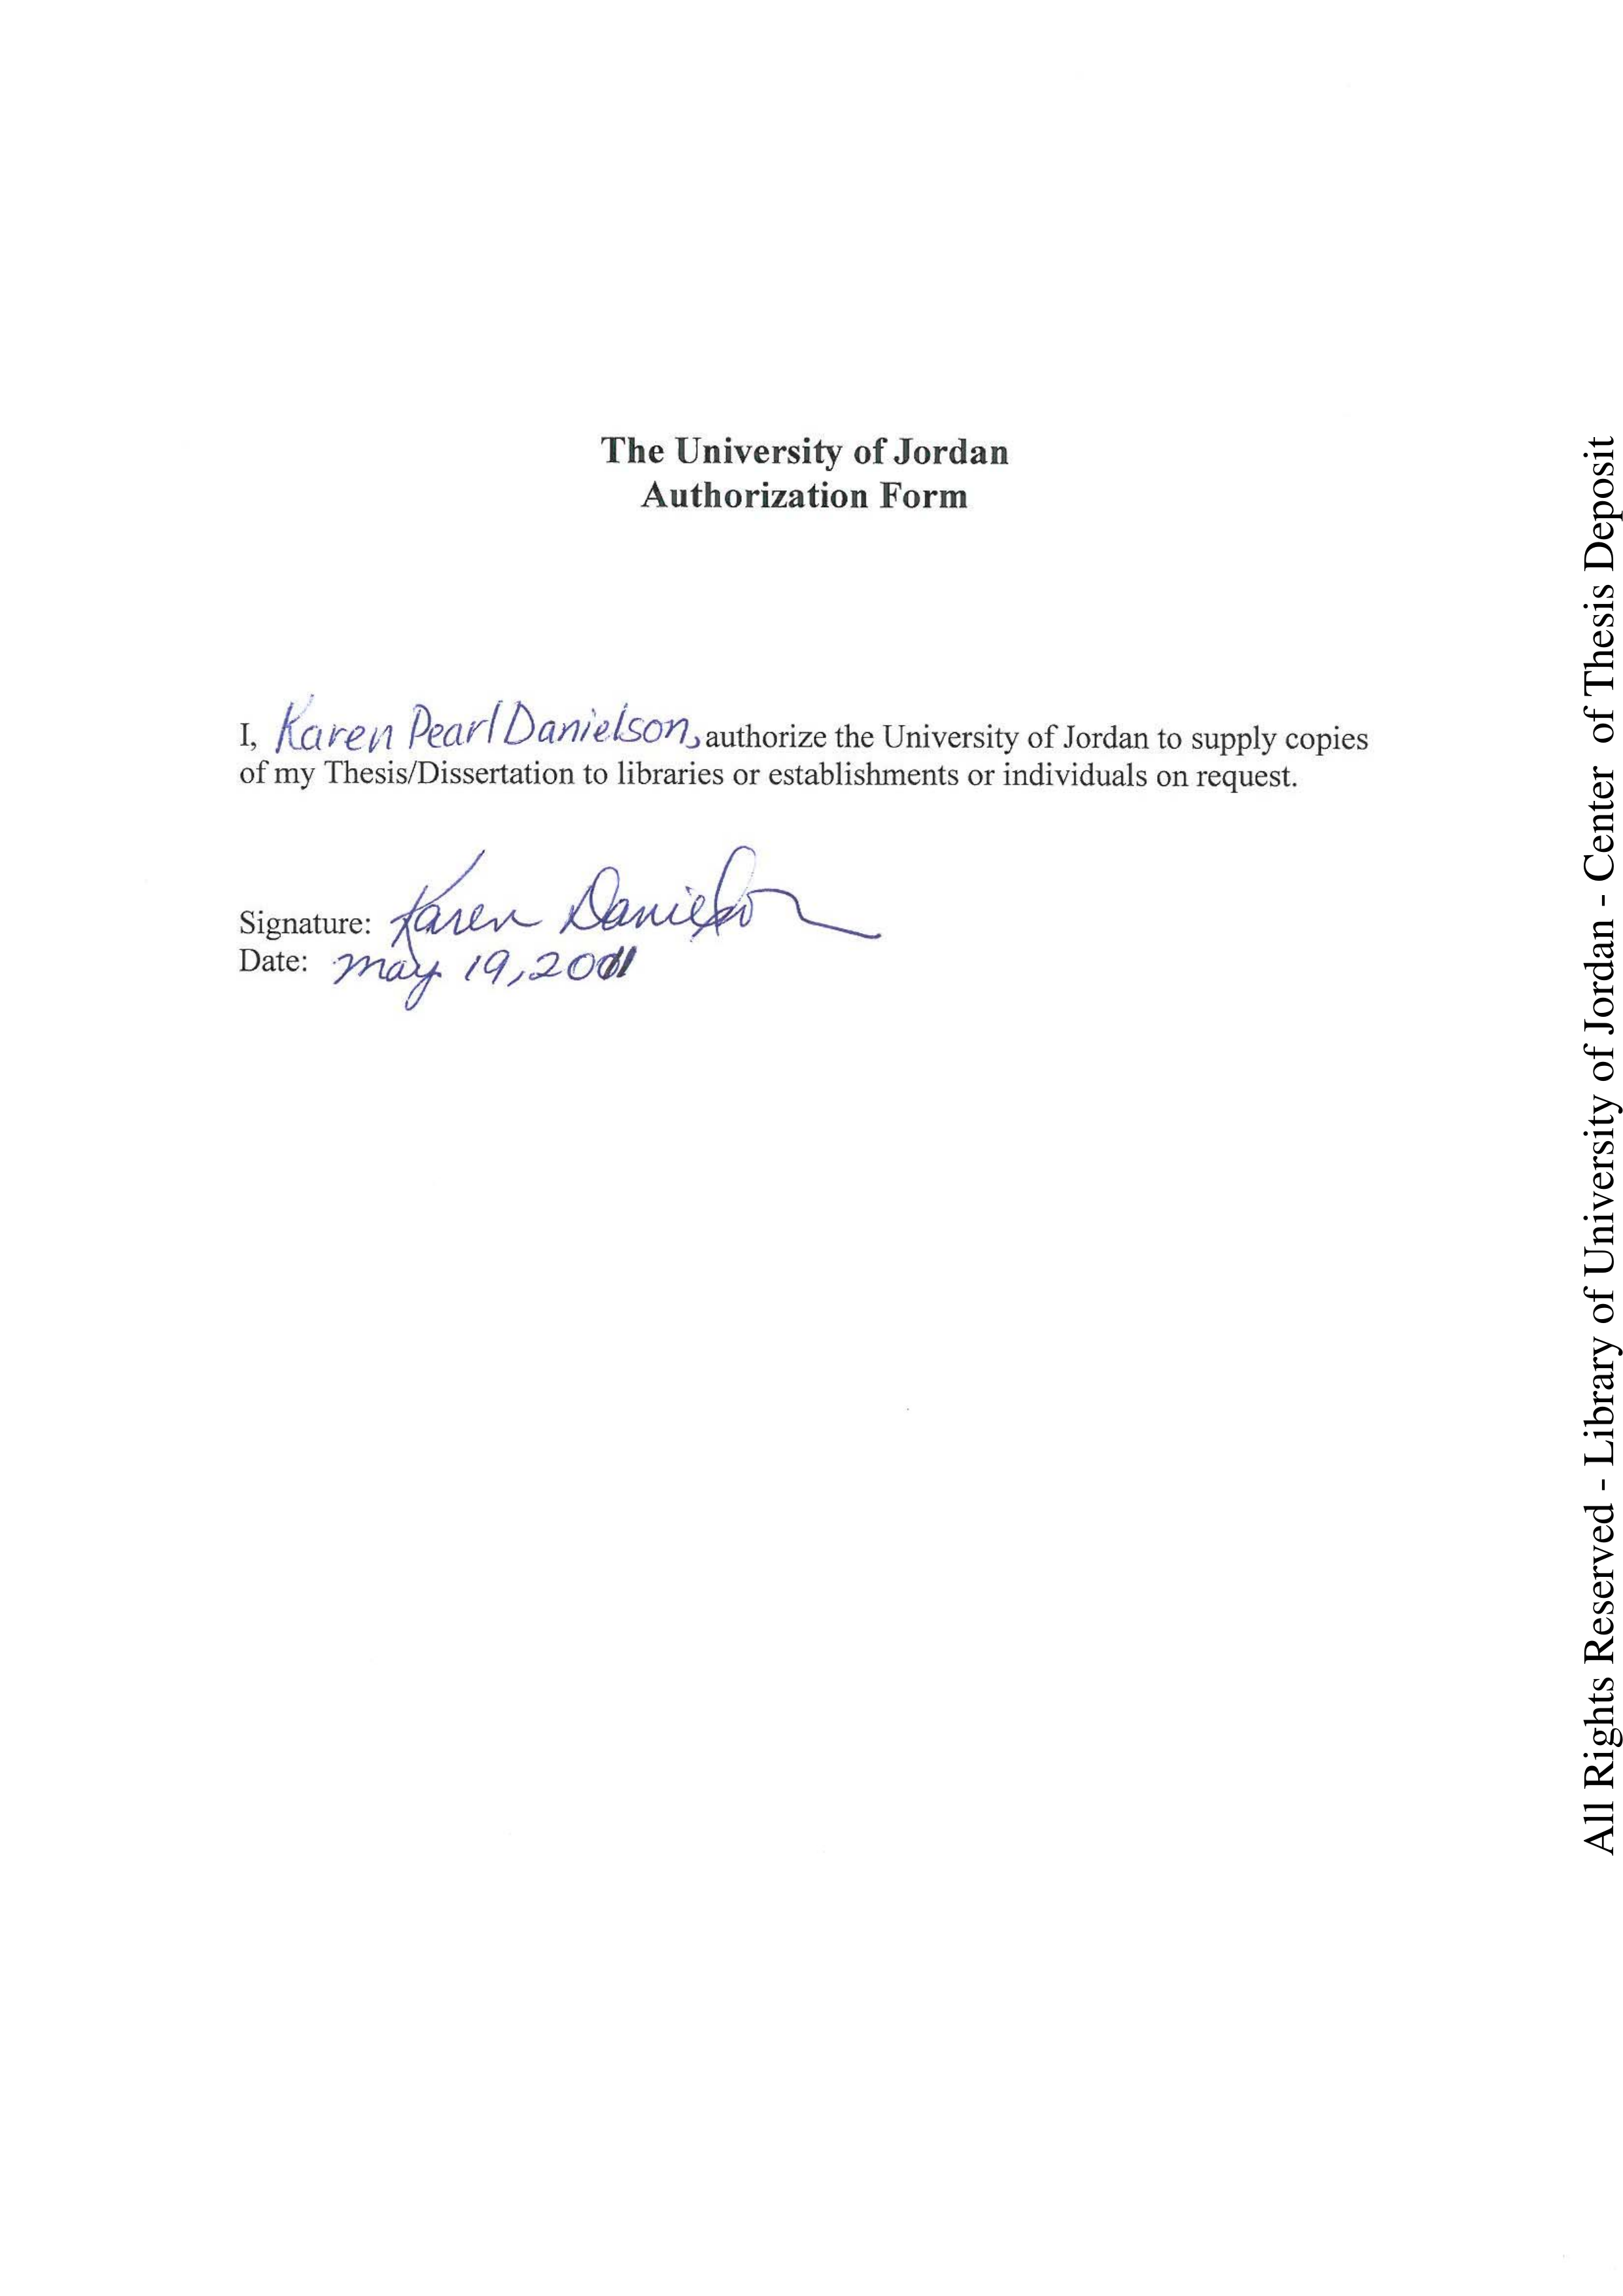 The University of Jordan
Authorization Form
I, Karen Pearl Danielson, authorize the University of Jordan to supply copies
of my Thesis/Dissertation to libraries or establishments or individuals on request.
Signature: Karen Danielson
Date: May 19, 2011
All Rights Reserved - Library of University of Jordan - Center of Thesis Deposit